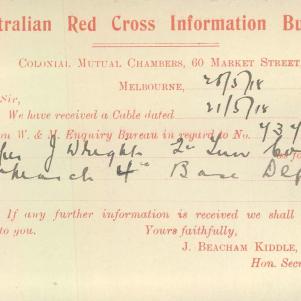 tralian Red Cross Information Bu
COLONIAL MUTUAL CHAMBERS, 60 MARKET STREET,
MELBOURNE, 28/5/18
Sir,
We have received a Cable dated 21/5/18
on W. & M. Enquiry Bureau in regard to No. 434
J Wright 2nd
4th Base Dep
If any further information is received we shall
to you. Yours faithfully,
J. BEACHAM KIDDLE,
Hon. Sec